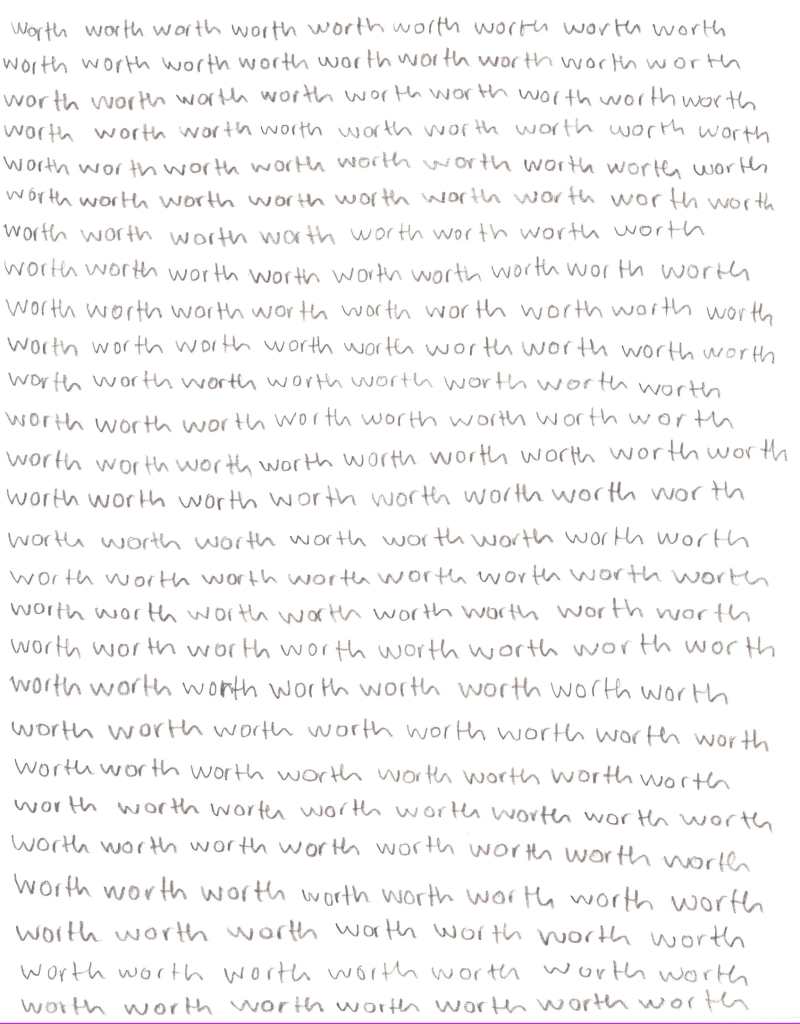 worth worth worth worth worth worth worth worth worth
worth worth worth worth worth worth worth worth worth
worth worth worth worth worth worth worth worth worth
worth worth worth worth worth worth worth worth worth
worth worth worth worth worth worth worth worth worth
worth worth worth worth worth worth worth worth worth
worth worth worth worth worth worth worth worth
worth worth worth worth worth worth worth worth worth
worth worth worth worth worth worth worth worth worth
worth worth worth worth worth worth worth worth worth
worth worth worth worth worth worth worth worth
worth worth worth worth worth worth worth worth
worth worth worth worth worth worth worth worth worth
worth worth worth worth worth worth worth worth
worth worth worth worth worth worth worth worth
worth worth worth worth worth worth worth worth
worth worth worth worth worth worth worth worth
worth worth worth worth worth worth worth worth
worth worth worth worth worth worth worth worth
worth worth worth worth worth worth worth worth
worth worth worth worth worth worth worth worth
worth worth worth worth worth worth worth worth
worth worth worth worth worth worth worth worth
worth worth worth worth worth worth worth worth
worth worth worth worth worth worth worth
worth worth worth worth worth worth worth
worth worth worth worth worth worth worth